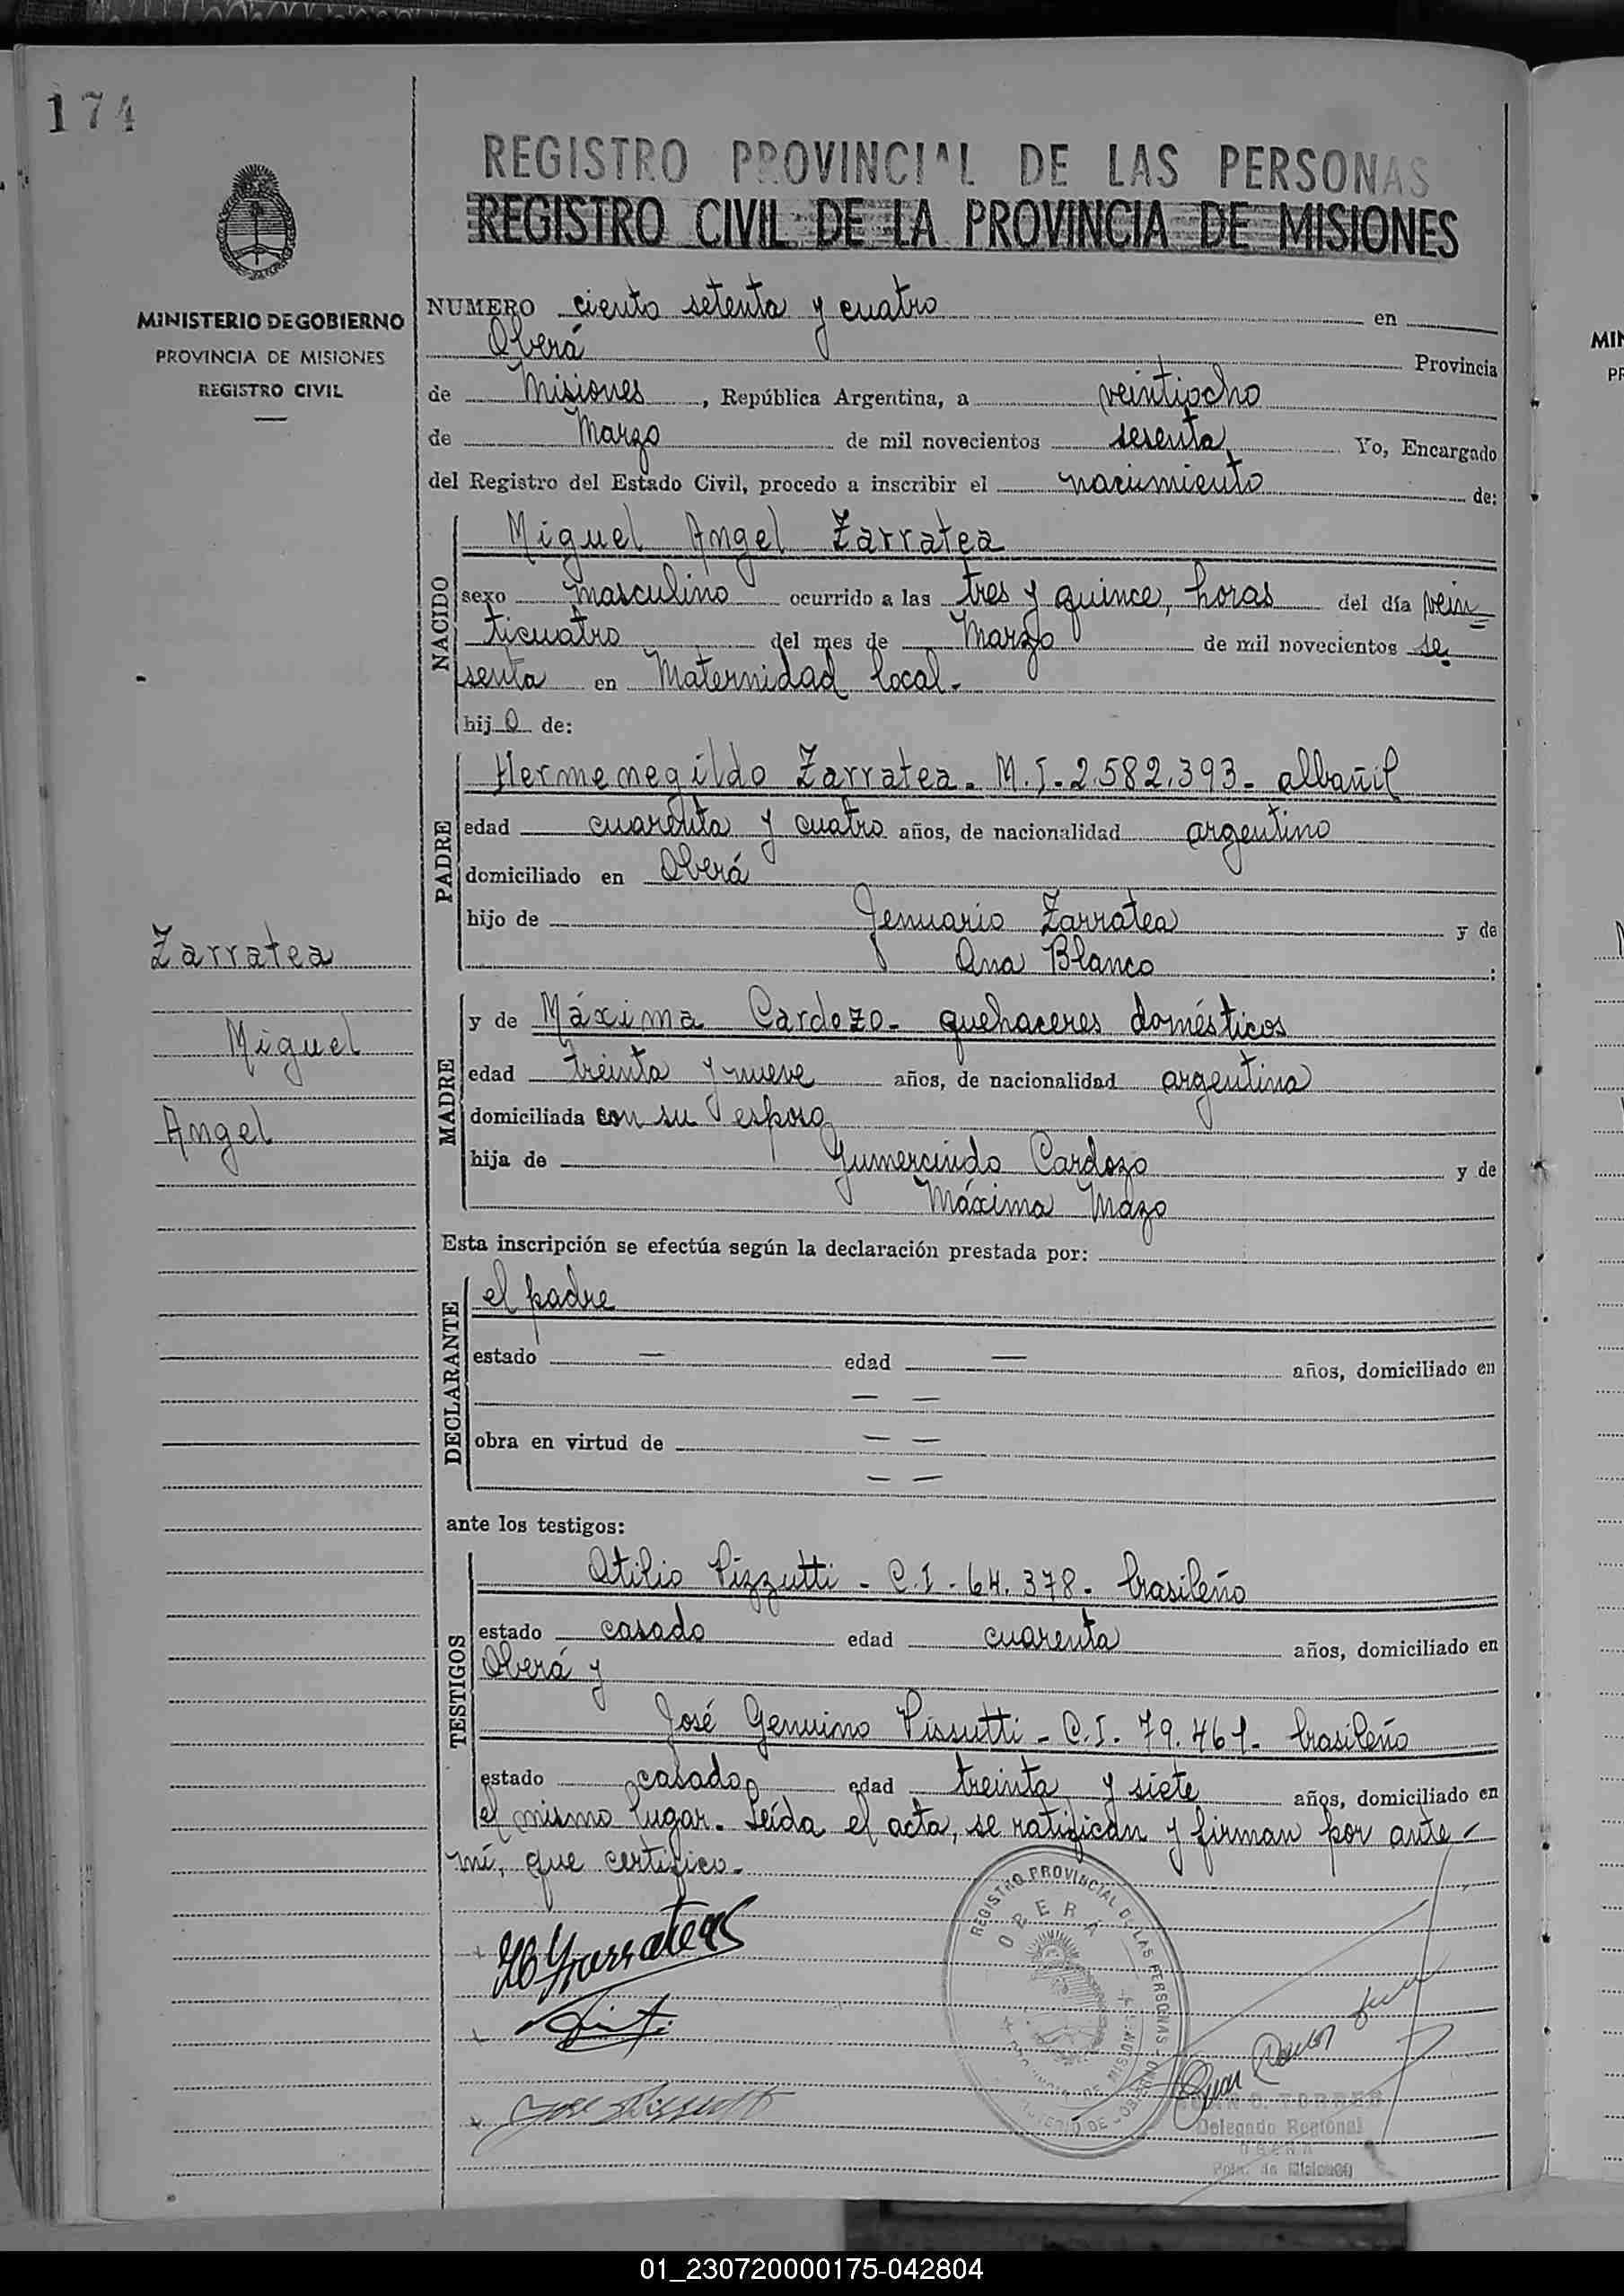 174
MINISTERIO DE GOBIERNO
PROVINCIA DE MISIONES
REGISTRO CIVIL
REGISTRO PROVINCIAL DE LAS PERSONAS
REGISTRO CIVIL DE LA PROVINCIA DE MISIONES
NUMERO ciento setenta y cuatro en
Oberá Provincia
de Misiones, República Argentina, a veintiocho
de Marzo de mil novecientos sesenta Yo, Encargado
del Registro del Estado Civil, procedo a inscribir el nacimiento de:
NACIDO
Miguel Angel Zarratea
sexo masculino ocurrido a las tres y quince, horas del día vein=
ticuatro del mes de Marzo de mil novecientos se
senta en Maternidad local.-
hijo de:
PADRE
Hermenegildo Zarratea - M.I-2.582.393- albañil
edad cuarenta y cuatro años, de nacionalidad argentino
domiciliado en Oberá
hijo de Jenuario Zarratea y de
Ana Blanco :
MADRE
y de Máxima Cardozo- quehaceres domésticos
edad treinta y nueve años, de nacionalidad argentina
domiciliada con su esposo
hija de Gumercindo Cardozo y de
Máxima Mazo
Zarratea
Miguel
Angel
Esta inscripción se efectúa según la declaración prestada por:
DECLARANTE
el padre
estado — edad — años, domiciliado en
— —
obra en virtud de — —
— —
ante los testigos:
TESTIGOS
Atilio Pizzutti - C.I - 64.378- brasileño
estado casado edad cuarenta años, domiciliado en
Oberá y
José Genuino Pissutti - C.I. 79.461- brasileño
estado casado edad treinta y siete años, domiciliado en
el mismo lugar. Leída el acta, se ratifican y firman por ante-
mí, que certifico.-
H Zarratea
REGISTRO PROVINCIAL DE LAS PERSONAS
OBERÁ
Delegado Regional
OBERA
Pcia. de Misiones
01_230720000175-042804